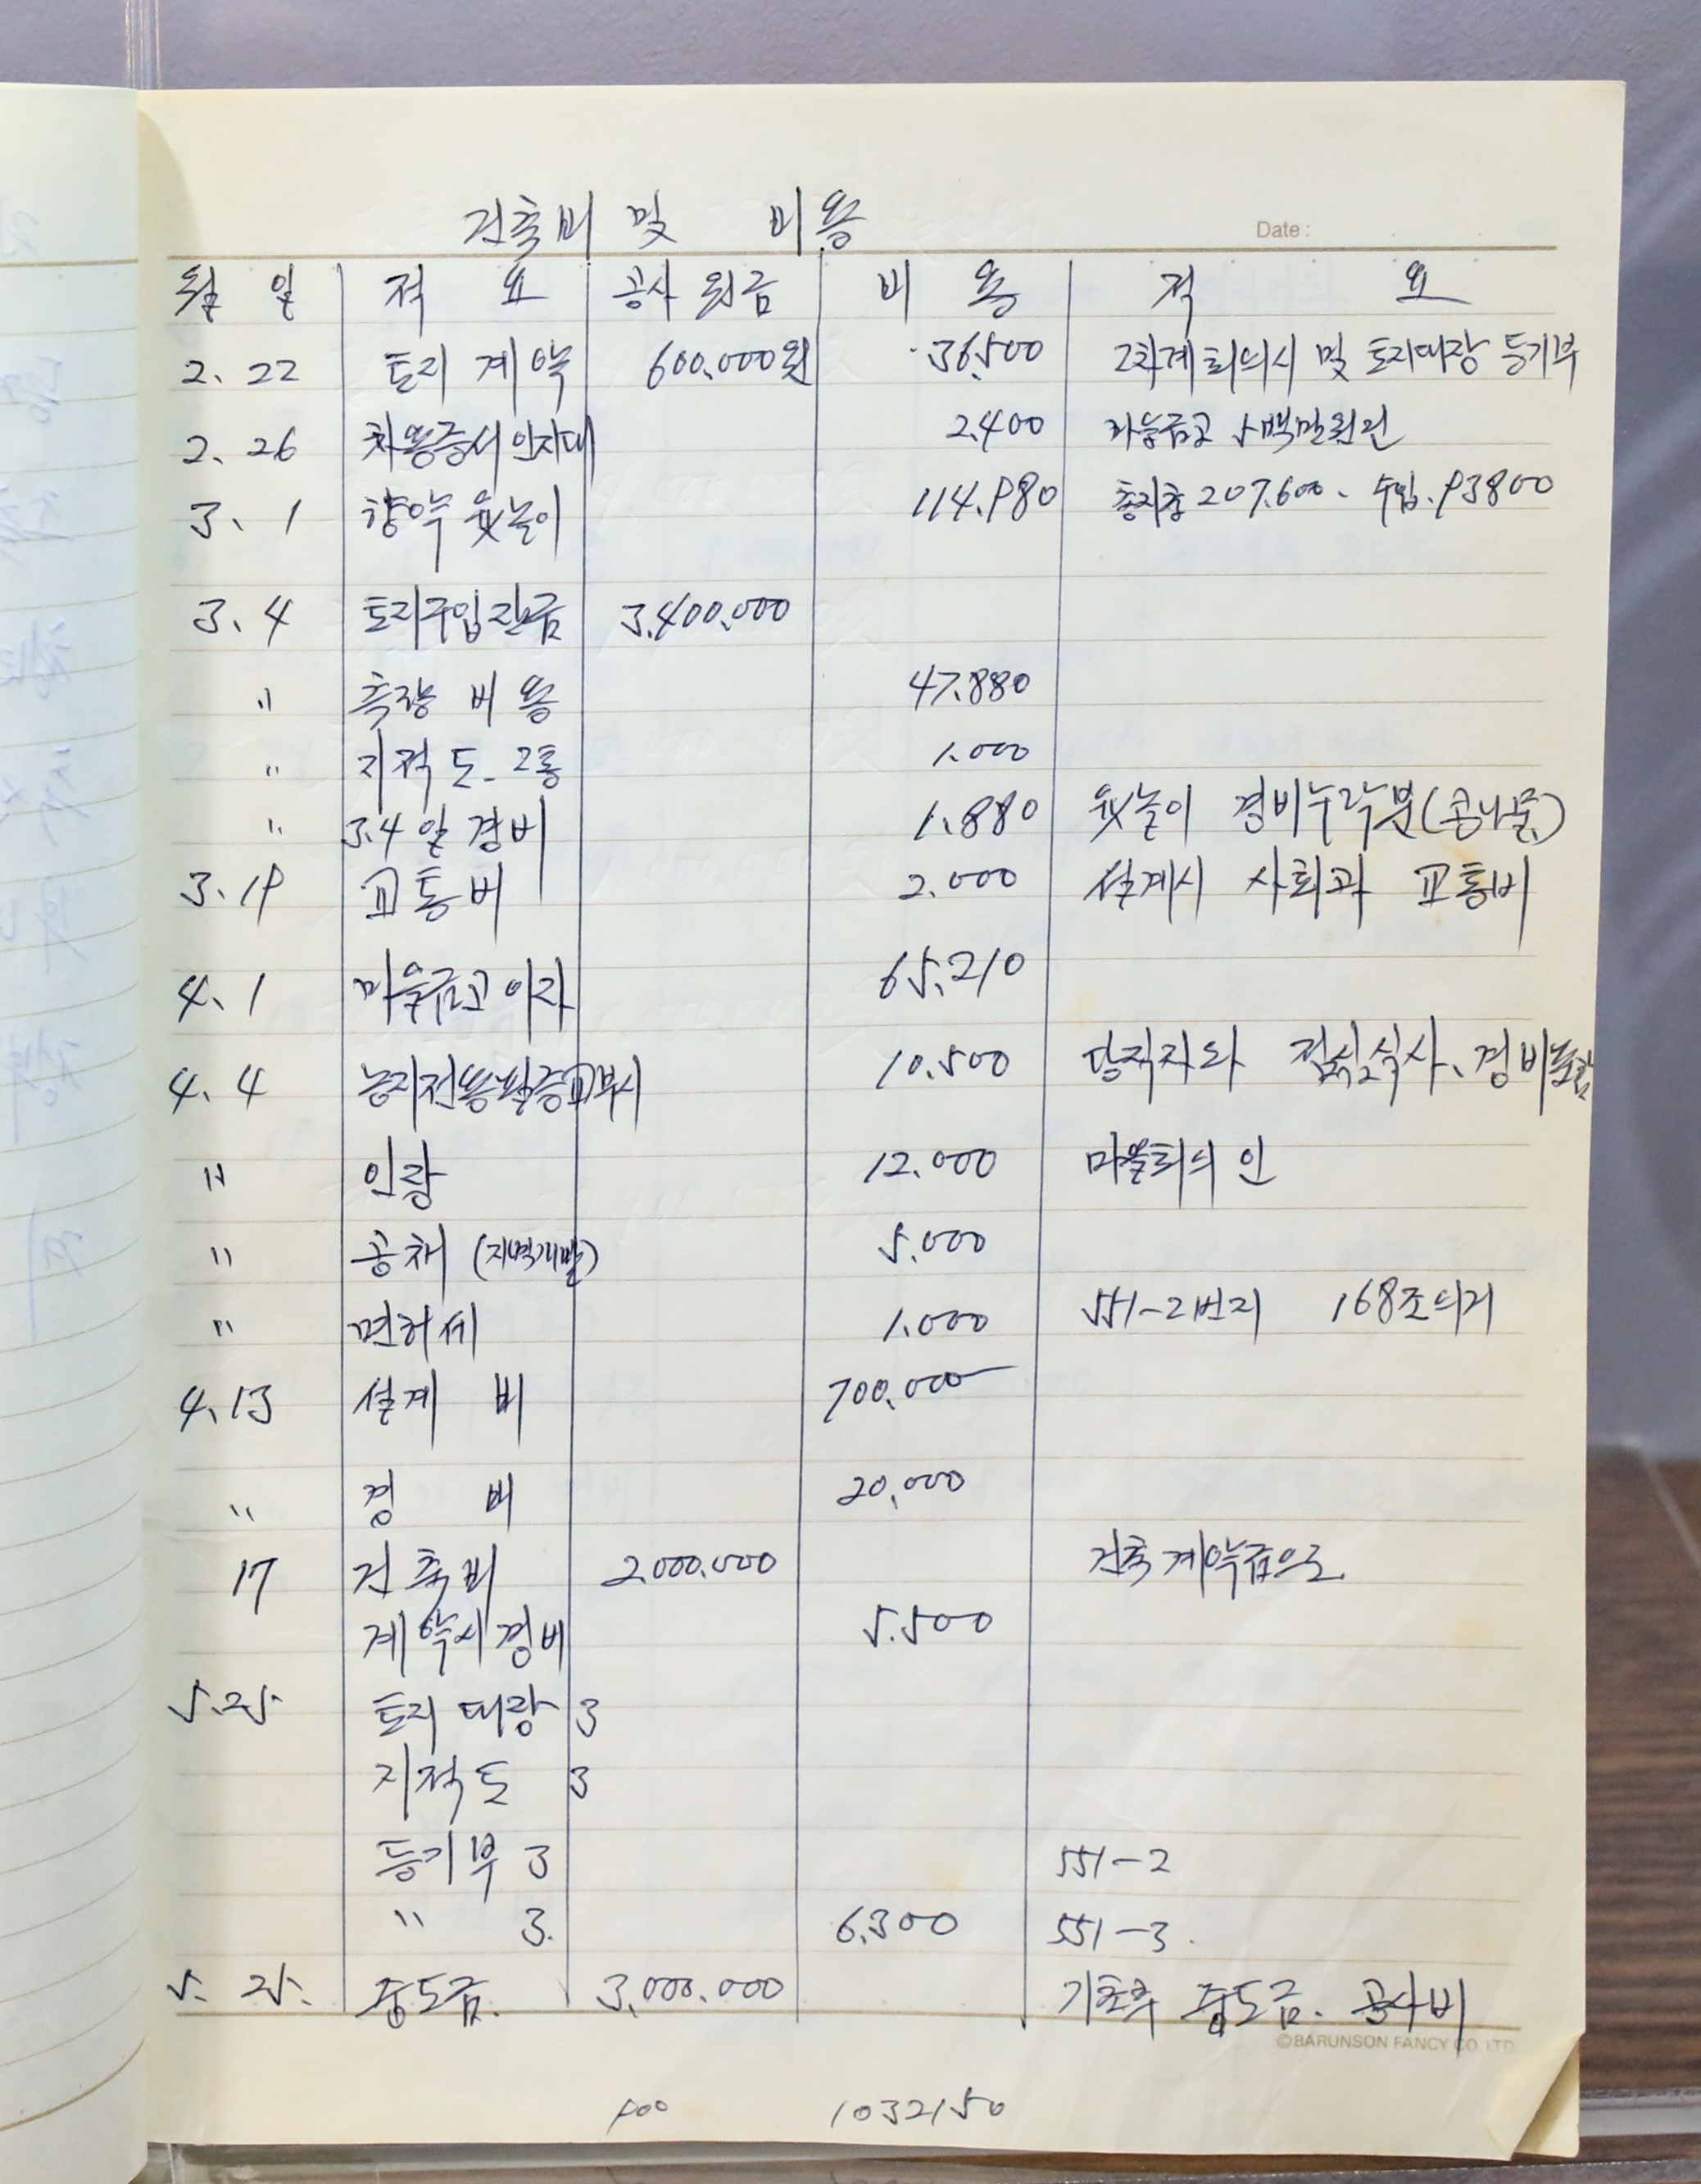 건축비 및 비용
Date :
월 일 적 요 공사 원금 비 용 적 요
2. 22 토지 계약 600.000원 36.500 2차계 회의시 및 토지대장 등기부
2. 26 차용증서 인지대 2.400 마을금고 5백만원건
3. 1 향약 윷놀이 114.980 총지출 207.600. 수입. 93800
3. 4 토지구입잔금 3.400.000
〃 측량 비용 47.880
〃 지적도 - 2통 1.000
〃 3.4일 경비 1.880 윷놀이 경비누락분(콩나물)
3. 19 교통비 2.000 설계시 사회과 교통비
4. 1 마을금고 이자 65.210
4. 4 농지전용 10.500 당직자와 점심식사、경비포함
〃 인랑 12.000 마을회의 인
〃 공채 (지역개발) 5.000
〃 면허세 1.000 551-2번지 168조의거
4. 13 설계 비 700.000
〃 경 비 20.000
17 건축비 2.000.000 건축계약금으로
계약시경비 5.500
5. 25. 토지 대장 3
지적도 3
등기부 3 551-2
〃 3. 6.300 551-3.
5. 25. 중도금. 3.000.000 중도금. 공사비
©BARUNSON FANCY CO. LTD
900 1032150